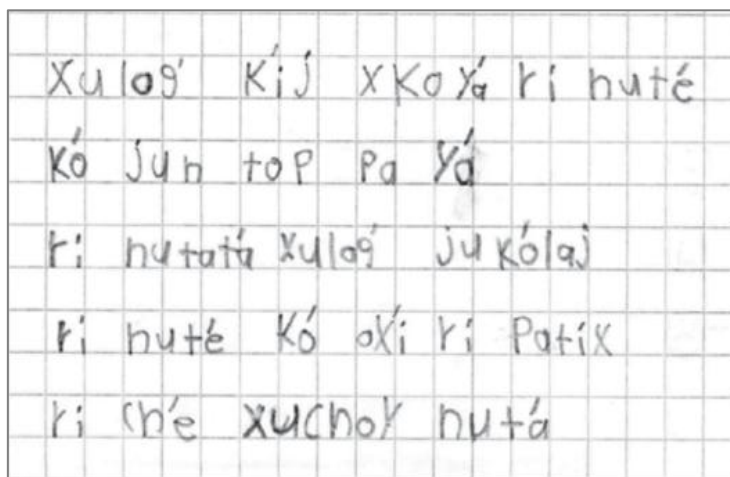 xulog' k'ij xkoy'a ri nute'
k'o jun top pa y'a
ri nutat'a xulog' ju k'olaj
ri nute' k'o ox'i ri patix
ri ch'e xuchoy nut'a